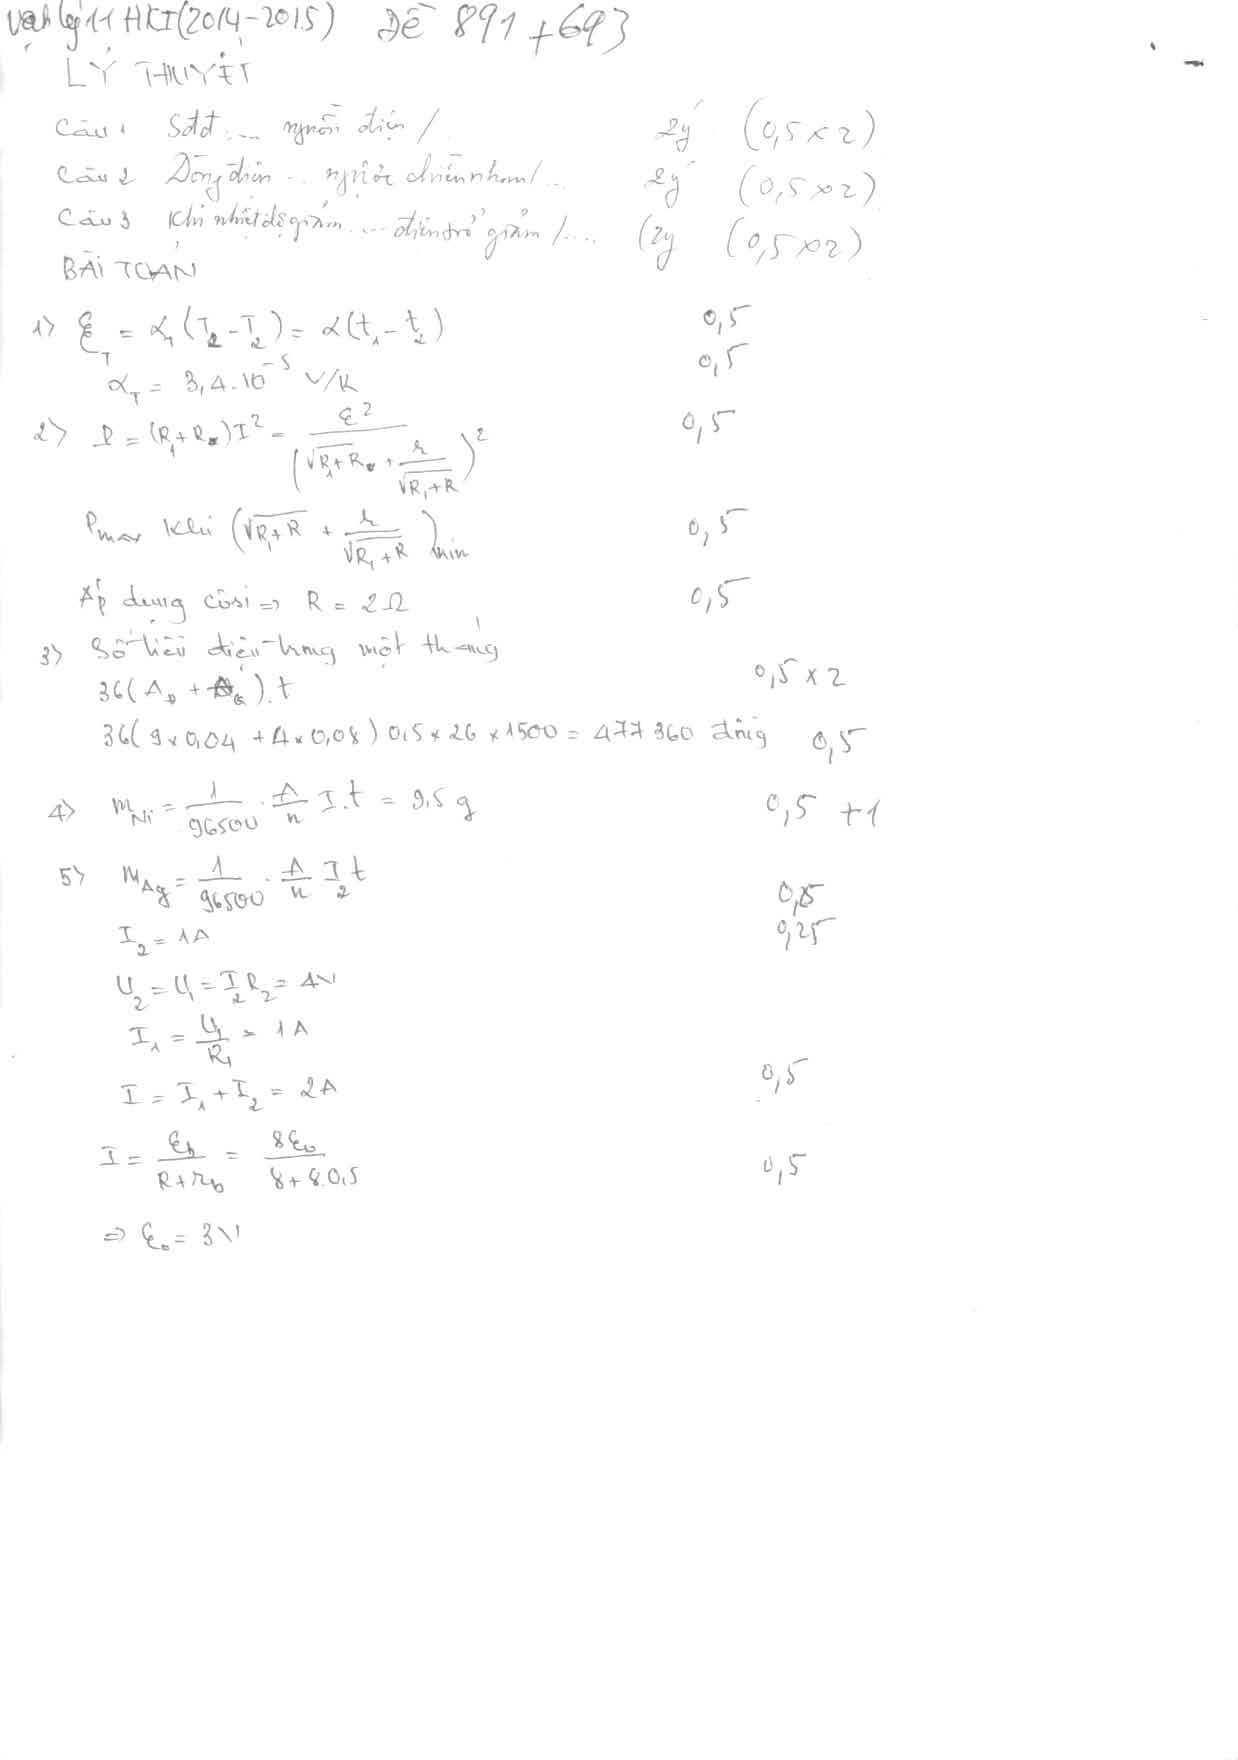 Vật lý 11 HKI (2014-2015) Đề 891 + 693
LÝ THUYẾT
Câu 1 Sđđ .... nguồn điện / 2ý (0,5 x 2)
Câu 2 Dòng điện ... ngược chiều nhau / ... 2ý (0,5 x 2)
Câu 3 Khi nhiệt độ giảm .... điện trở giảm / .... (2ý (0,5 x 2)
BÀI TOÁN
1> ℰ_T = α_1 (T_2 - T_2) = α (t_1 - t_2) 0,5
α_T = 3,4.10^-5 V/K 0,5
2> P = (R_1 + R_x) I^2 = ℰ^2 / (√R_1+R_x + r/√R_1+R)^2 0,5
P_max khi (√R_1+R + r/√R_1+R)_min 0,5
Áp dụng côsi => R = 2Ω 0,5
3> Số tiền điện trong một tháng
36(A_Đ + A_Q).t 0,5 x 2
36(9 x 0,04 + 4 x 0,08) 0,5 x 26 x 1500 = 477 360 đồng 0,5
4> m_Ni = 1/96500 . A/n I.t = 9,5 g 0,5 + 1
5> m_Ag = 1/96500 . A/n I_2 t 0,5
I_2 = 1A 0,25
U_2 = U_1 = I_2 R_2 = 4V
I_1 = U_1/R_1 = 1A
I = I_1 + I_2 = 2A 0,5
I = ℰ_b/(R + r_b) = 8ℰ_0/(8 + 8.0,5) 0,5
=> ℰ_0 = 3V